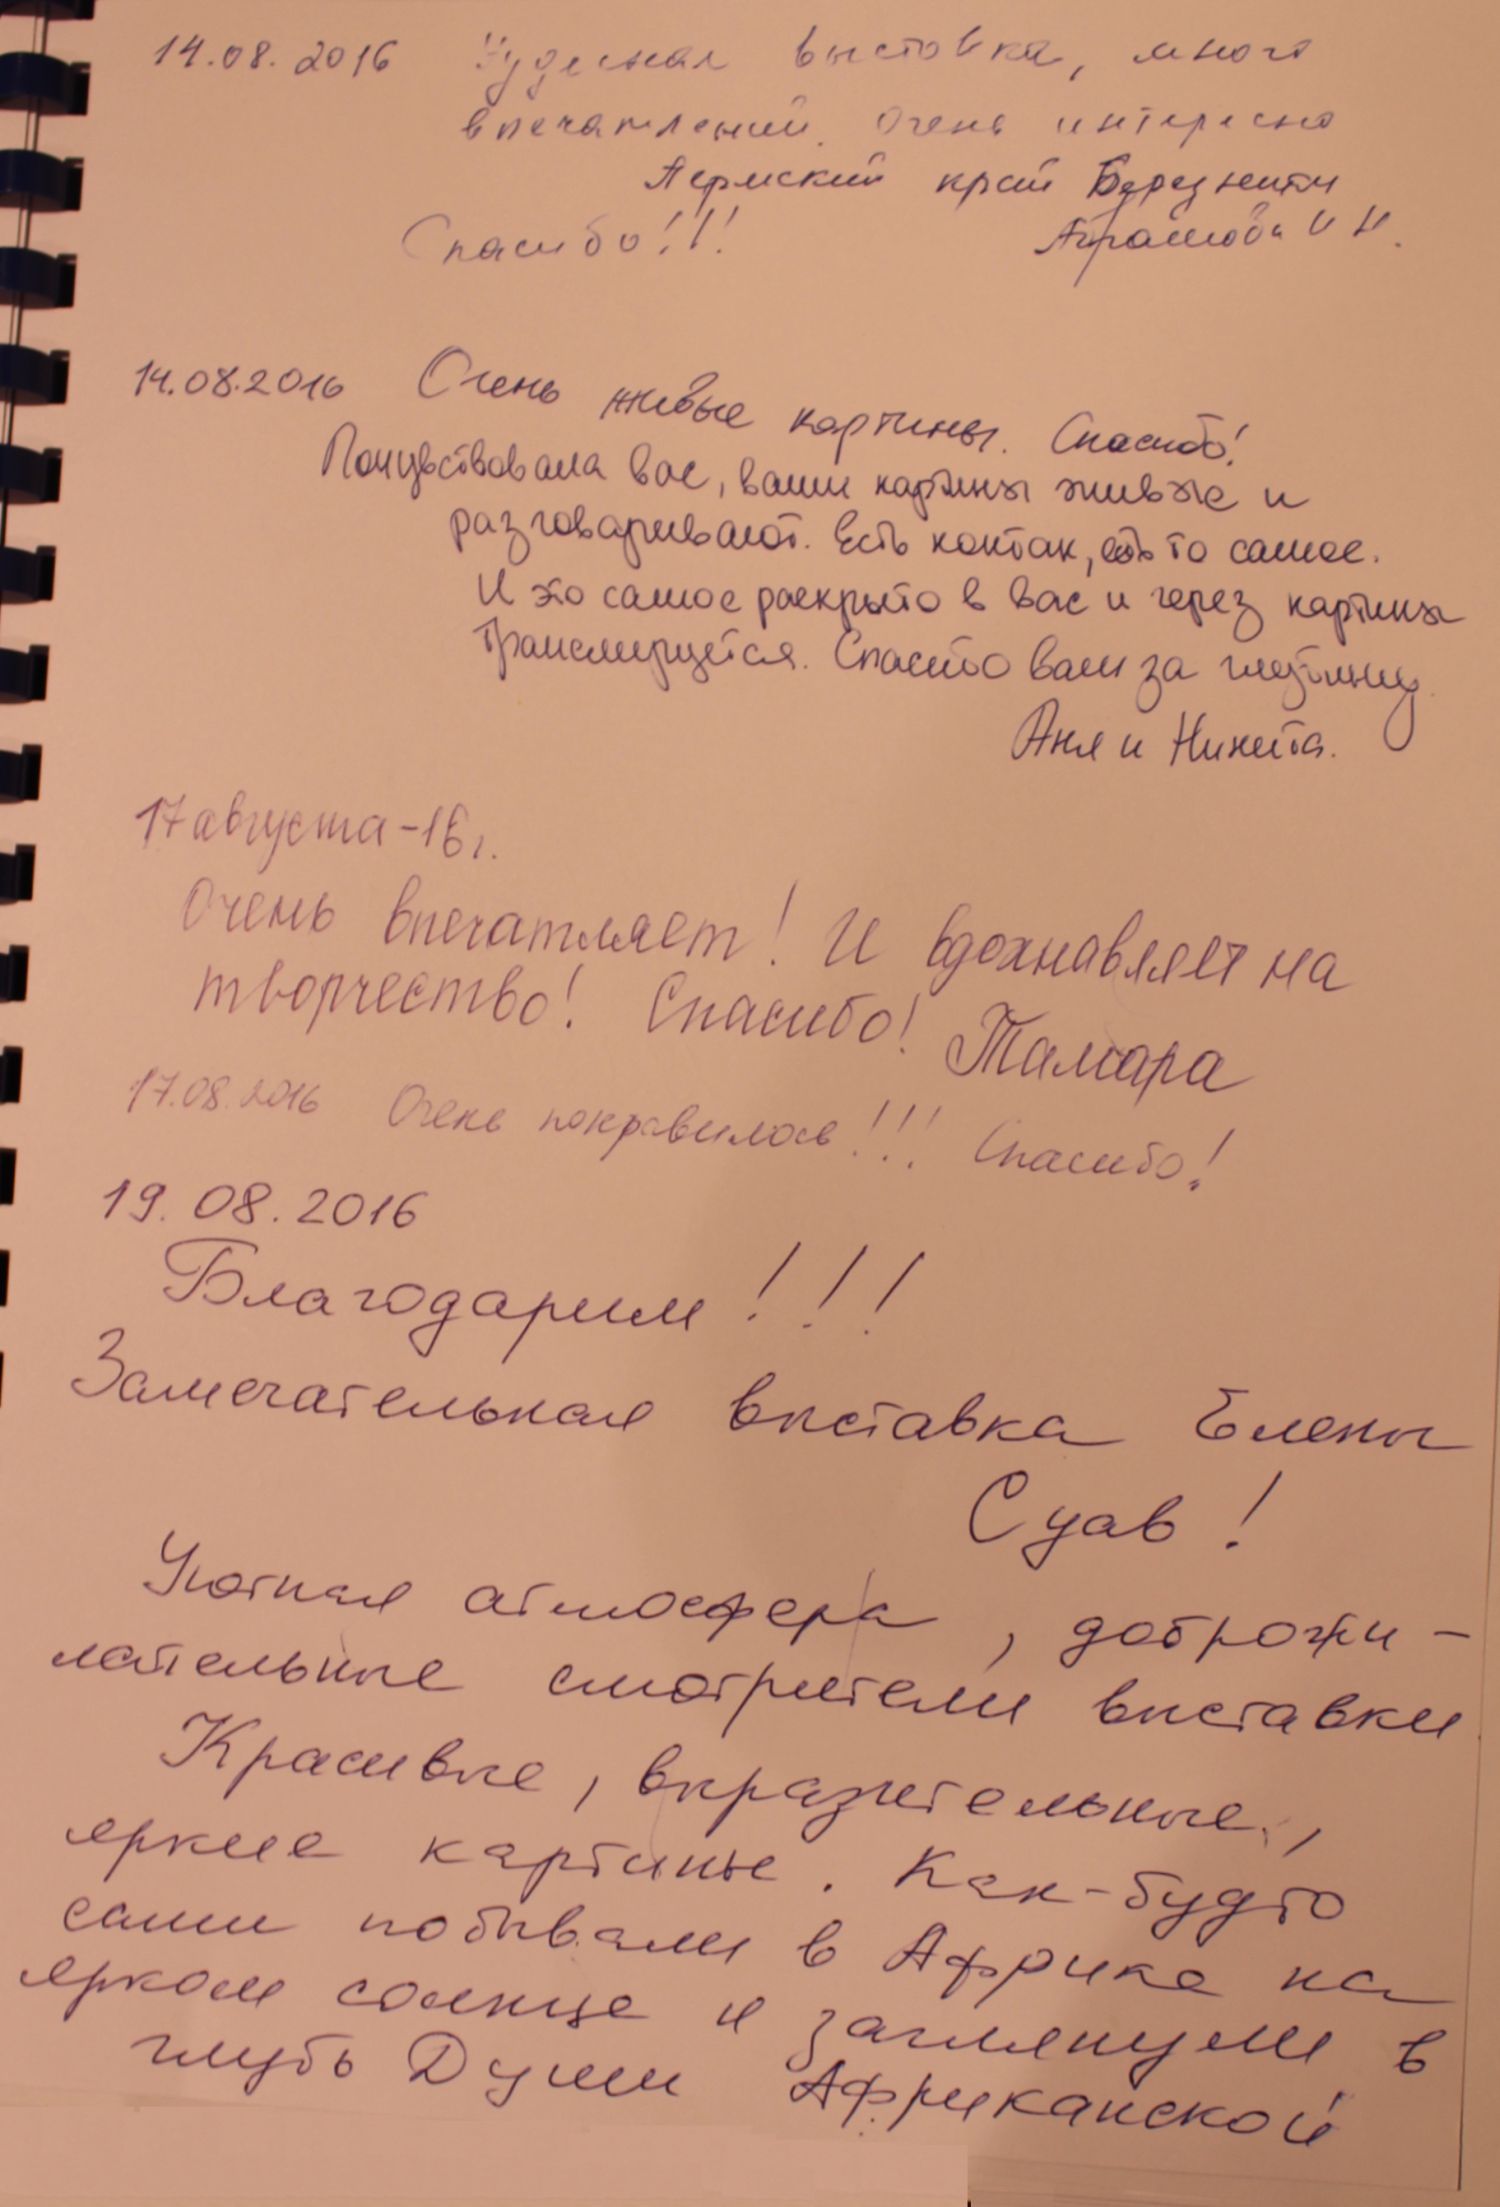 14.08.2016 Чудесная выставка, много
впечатлений. Очень интересно
Пермский край Березники
Спасибо!!! И Н.
14.08.2016 Очень живые картины. Спасибо!
Почувствовала вас, ваши картины живые и
разговаривают. Есть контак, есть то самое.
И это самое раскрыто в вас и через картины
транслируется. Спасибо вам за глубину.
Аня и Никита.
17 августа-16г.
Очень впечатляет! И вдохнавляет на
творчество! Спасибо! Тамара
17.08.2016 Очень понравилось!!! Спасибо!
19.08.2016
Благодарим!!!
Замечательная выставка Елены
Суав!
Уютная атмосфера, доброжи-
лательные смотрители выставки
Красивые, выразительные,
яркие картины. Как-будто
сами побывали в Африке на
ярком солнце и заглянули в
глубь Души Африканской